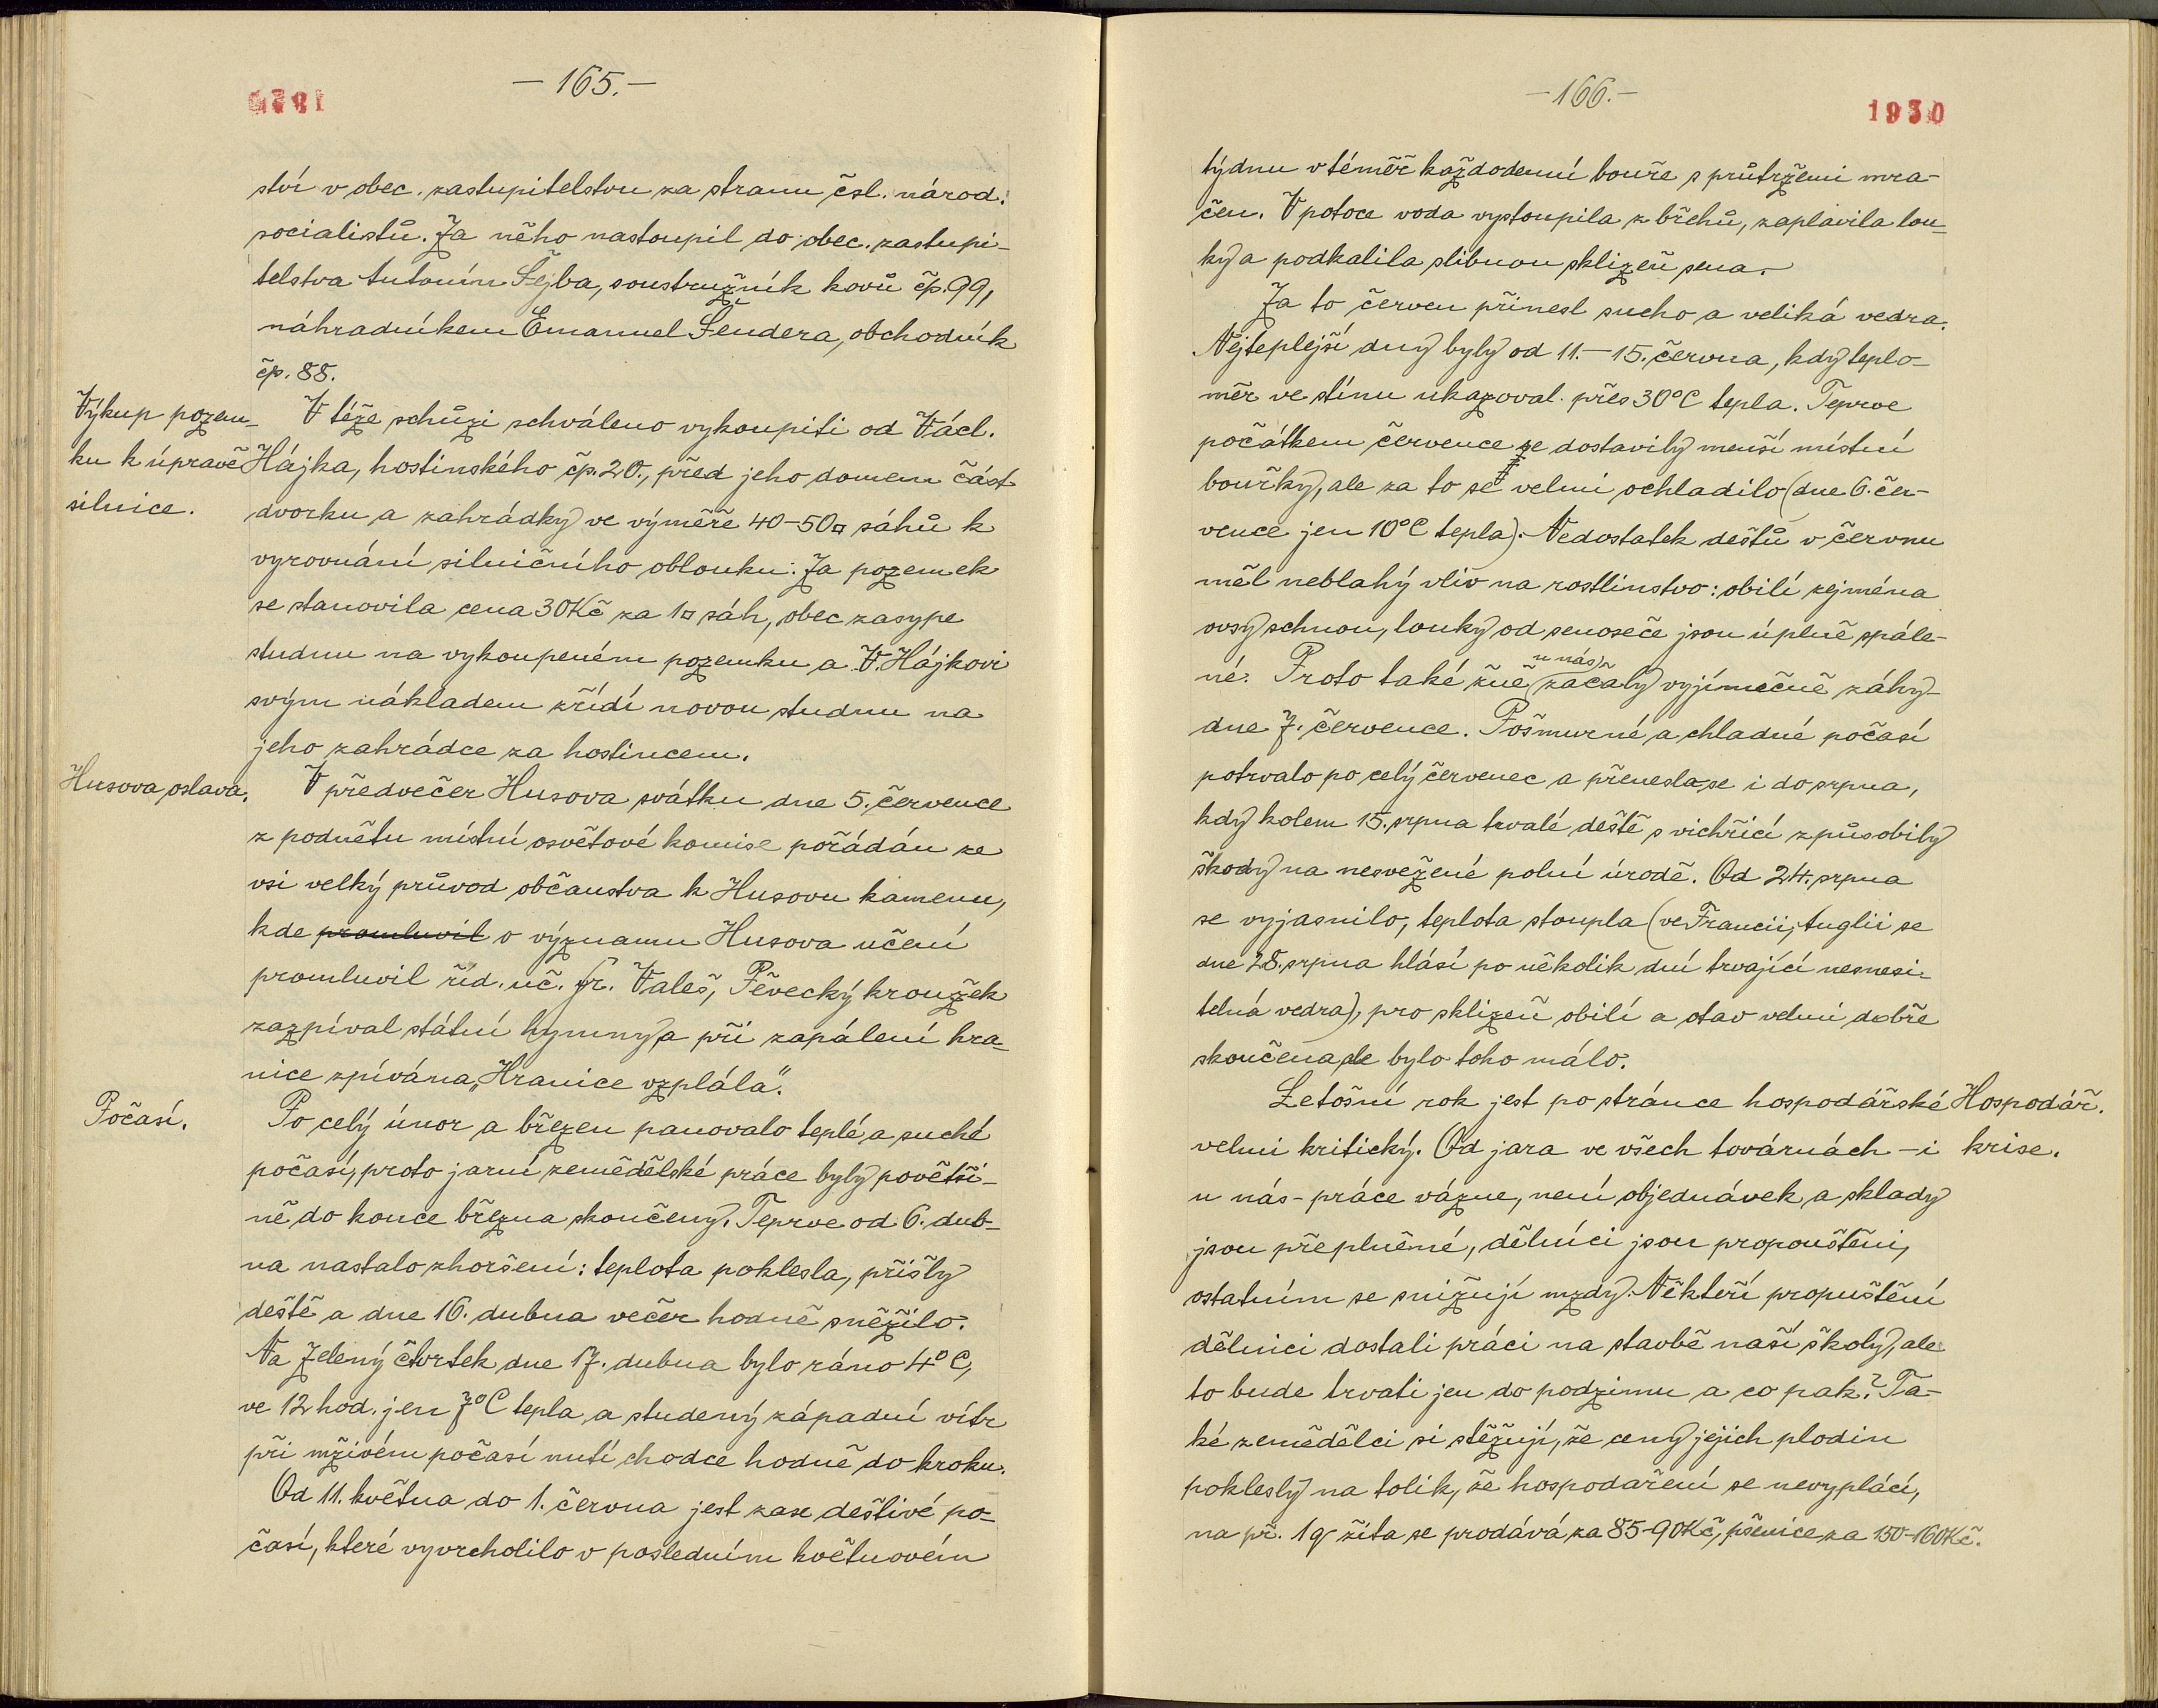 — 165. —
ství v obec. zastupitelstvu za stranu čsl. národ.
socialistů. Za něho nastoupil do obec. zastupi-
telstva Antonín Šejba, soustružník kovů čp. 99,
náhradníkem Emanuel Šendera, obchodník
čp. 88.
Výkup pozem-
ku k úpravě
silnice.
V téže schůzi schváleno vykoupiti od Václ.
Hájka, hostinského čp. 20., před jeho domem část
dvorku a zahrádky ve výměře 40-50□ sáhů k
vyrovnání silničního oblouku. Za pozemek
se stanovila cena 30Kč za 1□ sáh, obec zasype
studnu na vykoupeném pozemku a V. Hájkovi
svým nákladem zřídí novou studnu na
jeho zahrádce za hostincem.
Husova oslava.
V předvečer Husova svátku dne 5. července
z podnětu místní osvětové komise pořádán ze
vsi velký průvod občanstva k Husovu kamenu,
kde promluvil o významu Husova učení
promluvil říd. uč. Fr. Valeš, Pěvecký kroužek
zazpíval státní hymny a při zapálení hra-
nice zpívána „Hranice vzplála".
Počasí.
Po celý únor a březen panovalo teplé a suché
počasí, proto jarní zemědělské práce byly povětši-
ně do konce března skončeny. Teprve od 6. dub-
na nastalo zhoršení: teplota poklesla, přišly
deště a dne 16. dubna večer hodně sněžilo.
Na Zelený čtvrtek dne 17. dubna bylo ráno 4°C,
ve 12 hod. jen 7°C tepla a studený západní vítr
při mživém počasí nutí chodce hodně do kroku.
Od 11. května do 1. června jest zase deštivé po-
časí, které vyvrcholilo v posledním květnovém
— 166. —
1930
týdnu v téměř každodenní bouře s průtržemi mra-
čen. V potoce voda vystoupila z břehů, zaplavila lou-
ky a podkalila slibnou sklizeň sena.
Za to červen přinesl sucho a veliká vedra.
Nejteplejší dny byly od 11.-15. června, kdy teplo-
měr ve stínu ukazoval přes 30°C tepla. Teprve
počátkem července se dostavily menší místní
bouřky, ale za to se velmi ochladilo (dne 6. čer-
vence jen 10°C tepla). Nedostatek deštů v červnu
měl neblahý vliv na rostlinstvo: obilí zejména
ovsy schnou, louky od senoseče jsou úplně spále-
né. Proto také žně u nás začaly vyjímečně záhy-
dne 7. července. Pošmurné a chladné počasí
potrvalo po celý červenec a přenesla se i do srpna,
kdy kolem 15. srpna trvalé deště s vichřicí způsobily
škody na nesvežené polní úrodě. Od 24. srpna
se vyjasnilo, teplota stoupla (ve Francii, Anglii se
dne 28. srpna hlásí po několik dní trvající nesnesi-
telná vedra), pro sklizeň obilí a otav velmi dobře
skončena, ale bylo toho málo.
Hospodář.
krise.
Letošní rok jest po stránce hospodářské
velmi kritický. Od jara ve všech továrnách - i
u nás - práce vázne, není objednávek a sklady
jsou přeplněné, dělníci jsou propouštěni,
ostatním se snižují mzdy. Někteří propuštění
dělnici dostali práci na stavbě naší školy, ale
to bude trvati jen do podzimu a co pak? Ta-
ké zemědělci si stěžují, že ceny jejich plodin
poklesly na tolik, že hospodaření se nevyplácí,
na př. 1q žita se prodává za 85-90Kč, pšenice za 150-160Kč.